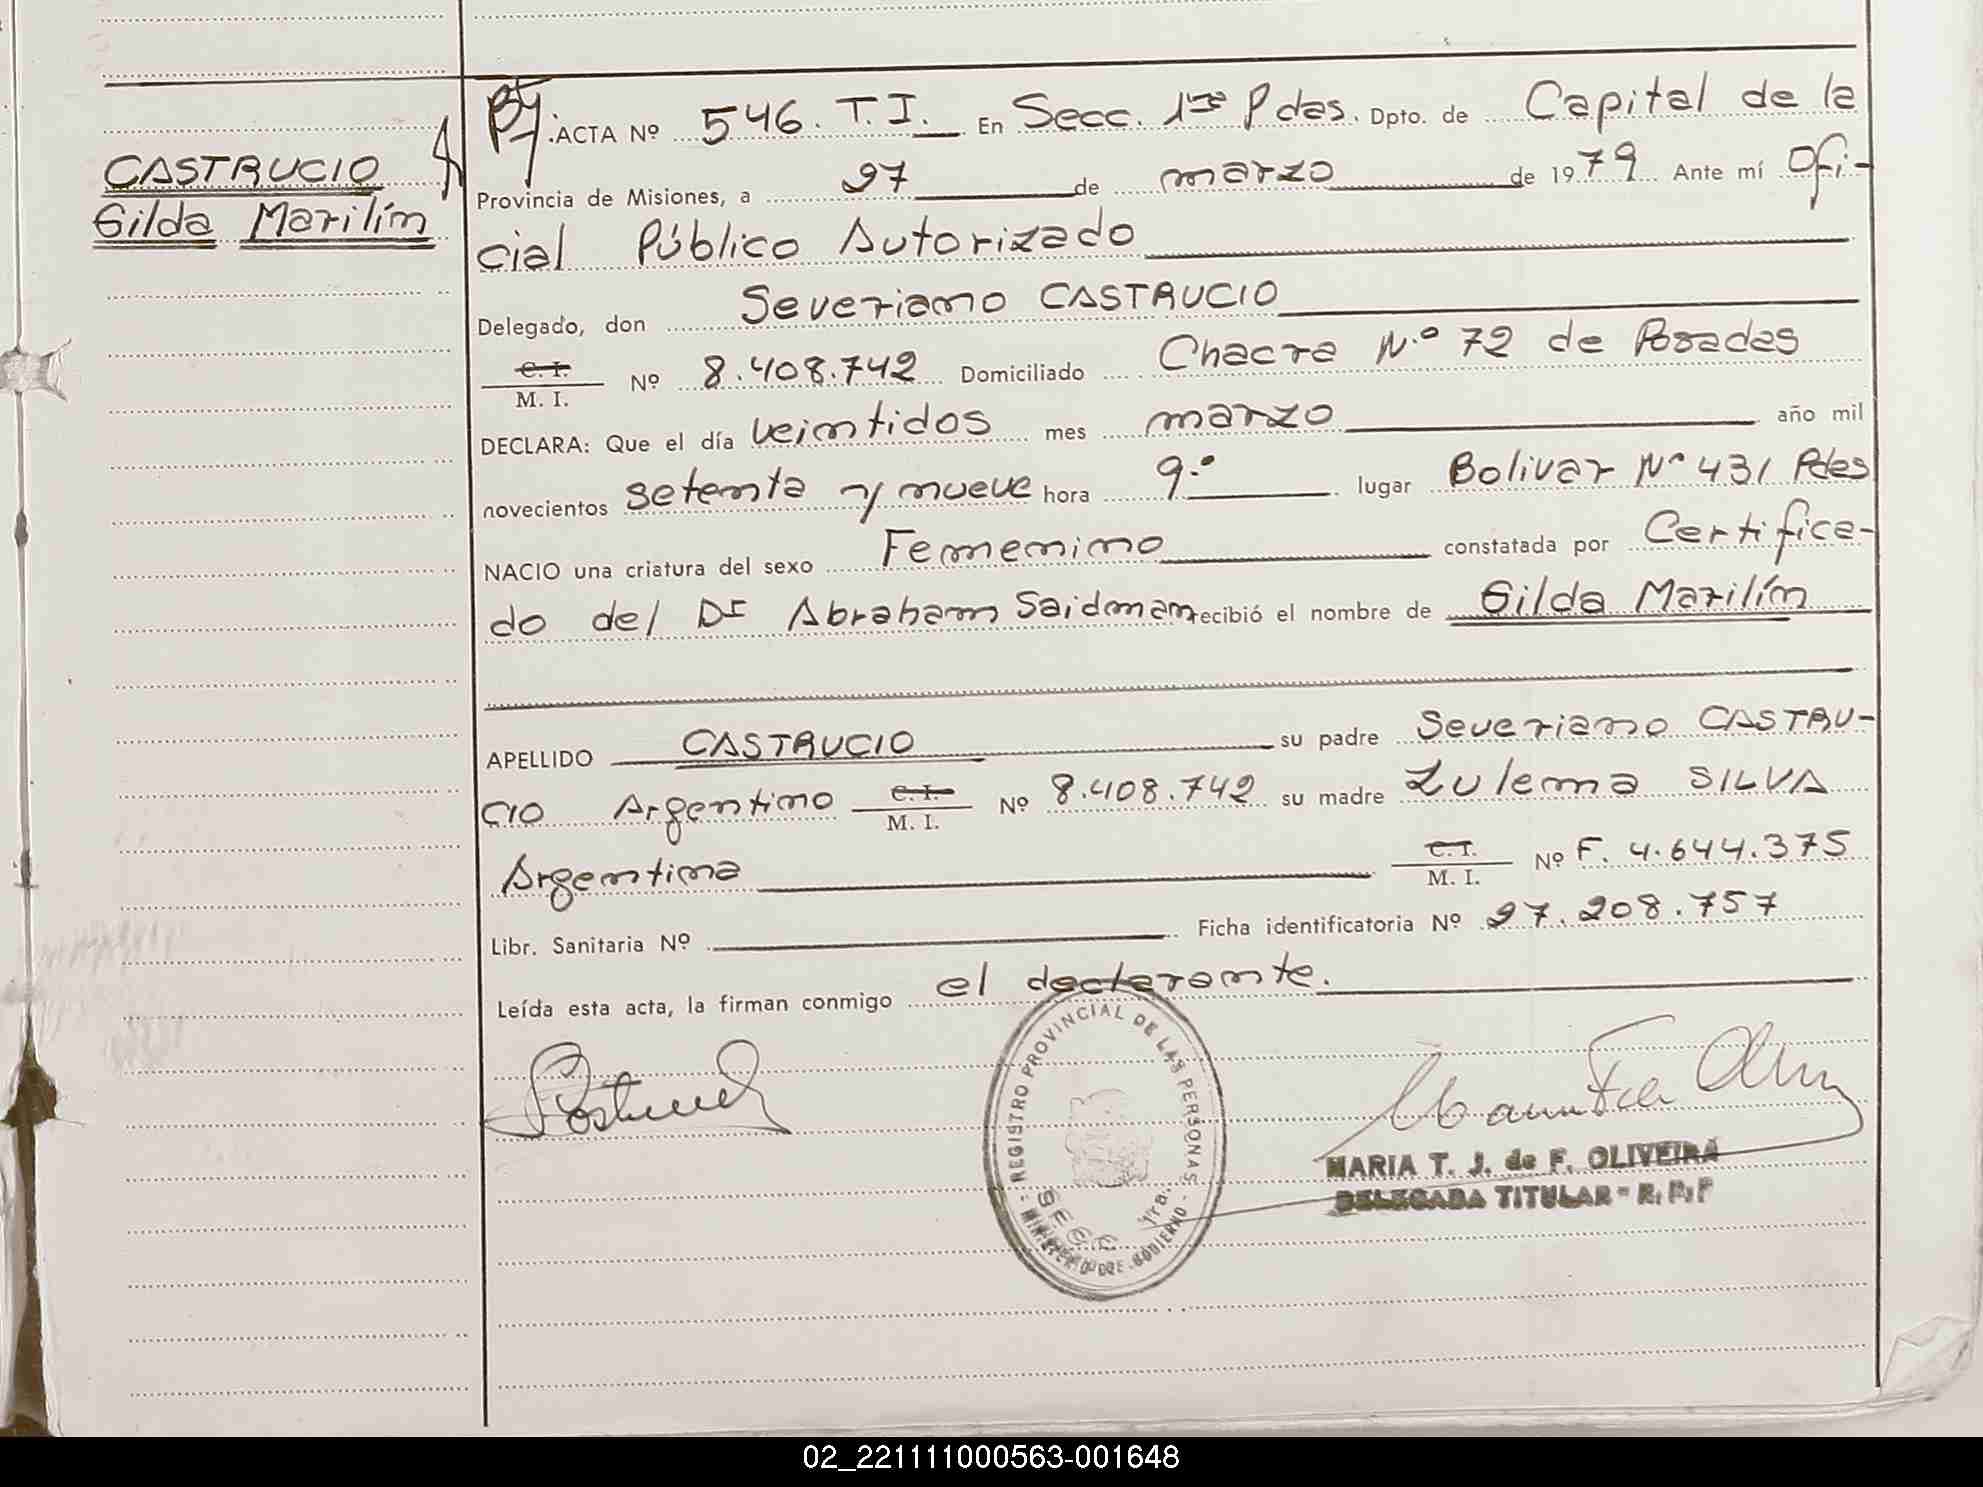 CASTRUCIO
Gilda Marilín
ACTA Nº 546. T.I. En Secc. 1ra Pdas. Dpto. de Capital de la
Provincia de Misiones, a 27 de marzo de 1979 Ante mí Ofi-
cial Público Autorizado
Delegado, don Severiano CASTRUCIO
C. I. M. I. Nº 8.408.742 Domiciliado Chacra N.º 72 de Posadas
DECLARA: Que el día veintidos mes marzo año mil
novecientos setenta y nueve hora 9.º lugar Bolivar Nº 431 Pdas
NACIO una criatura del sexo Femenino constatada por Certifica-
do del Dr Abraham Saidman recibió el nombre de Gilda Marilín
APELLIDO CASTRUCIO su padre Severiano CASTRU-
CIO Argentino C. I. M. I. Nº 8.408.742 su madre Zulema SILVA
Argentina C. I. M. I. Nº F. 4.644.375
Libr. Sanitaria Nº Ficha identificatoria Nº 27.208.757
Leída esta acta, la firman conmigo el declarante.
REGISTRO PROVINCIAL DE LAS PERSONAS
SECC. 1ra.
MINISTERIO DE GOBIERNO
MARIA T. J. de F. OLIVEIRA
DELEGADA TITULAR - R. P. P
02_221111000563-001648